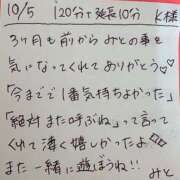 10/5 120分+延長10分 K様
3ヶ月も前からみとの事を
気になっててくれてありがとう♡♡
「今までで1番気持ちよかった」
「絶対また呼ぶね」って言って
くれて凄く嬉しかったよ
また一緒に遊ぼうね!!
みと